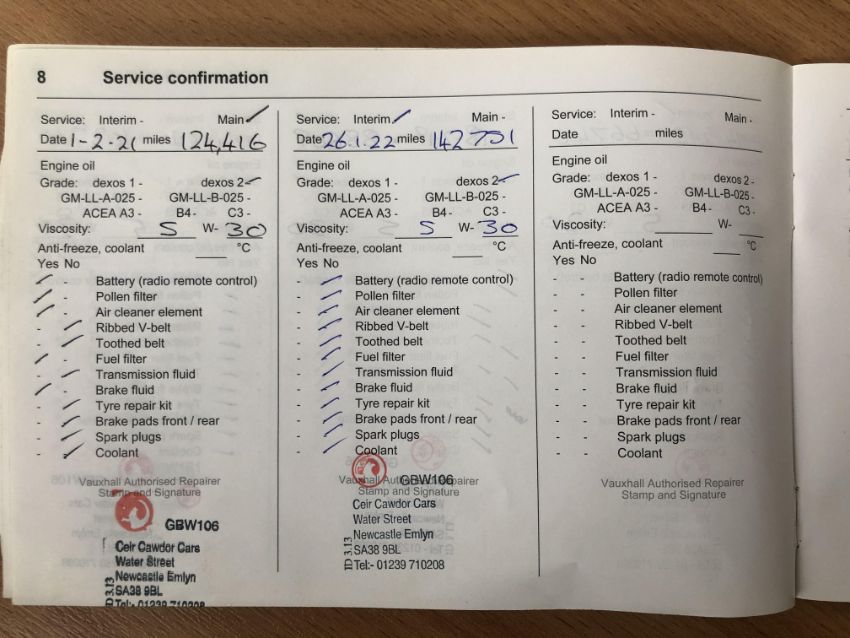 8 Service confirmation
Service: Interim - Main ✓
Date 1-2-21 miles 124,416
Engine oil
Grade: dexos 1 - dexos 2 ✓
GM-LL-A-025 - GM-LL-B-025 -
ACEA A3 - B4 - C3 -
Viscosity: 5 W- 30
Anti-freeze, coolant °C
Yes No
✓ - Battery (radio remote control)
✓ - Pollen filter
✓ - Air cleaner element
- ✓ Ribbed V-belt
- ✓ Toothed belt
✓ - Fuel filter
- ✓ Transmission fluid
✓ - Brake fluid
- ✓ Tyre repair kit
- ✓ Brake pads front / rear
- ✓ Spark plugs
- ✓ Coolant
Vauxhall Authorised Repairer
Stamp and Signature
GBW106
Ceir Cawdor Cars
Water Street
Newcastle Emlyn
SA38 9BL
Tel:- 01239 710208
ID 3.13
Service: Interim ✓ Main -
Date 26.1.22 miles 142751
Engine oil
Grade: dexos 1 - dexos 2 ✓
GM-LL-A-025 - GM-LL-B-025 -
ACEA A3 - B4 - C3 -
Viscosity: 5 W- 30
Anti-freeze, coolant °C
Yes No
- ✓ Battery (radio remote control)
- ✓ Pollen filter
- ✓ Air cleaner element
- ✓ Ribbed V-belt
- ✓ Toothed belt
- ✓ Fuel filter
- ✓ Transmission fluid
- ✓ Brake fluid
- ✓ Tyre repair kit
- ✓ Brake pads front / rear
- ✓ Spark plugs
- ✓ Coolant
Vauxhall Authorised Repairer
GBW106
Stamp and Signature
Ceir Cawdor Cars
Water Street
Newcastle Emlyn
SA38 9BL
Tel:- 01239 710208
ID 3.13
Service: Interim - Main -
Date miles
Engine oil
Grade: dexos 1 - dexos 2 -
GM-LL-A-025 - GM-LL-B-025 -
ACEA A3 - B4 - C3 -
Viscosity: W-
Anti-freeze, coolant °C
Yes No
- - Battery (radio remote control)
- - Pollen filter
- - Air cleaner element
- - Ribbed V-belt
- - Toothed belt
- - Fuel filter
- - Transmission fluid
- - Brake fluid
- - Tyre repair kit
- - Brake pads front / rear
- - Spark plugs
- - Coolant
Vauxhall Authorised Repairer
Stamp and Signature